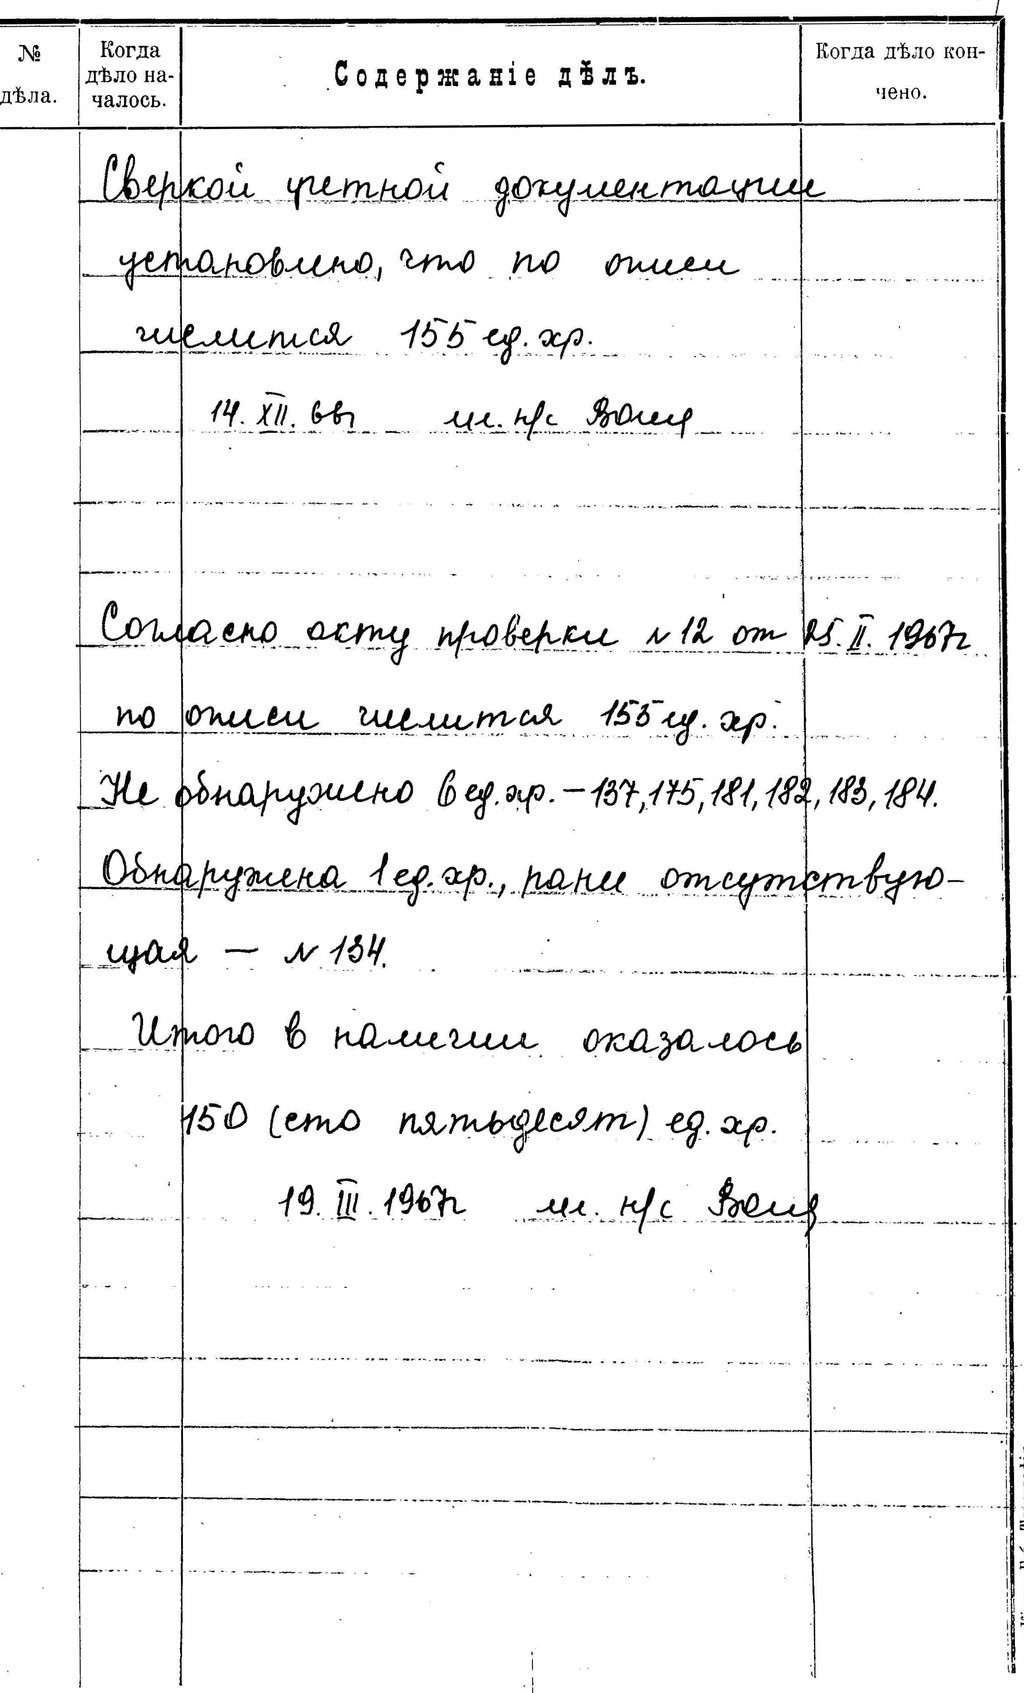 № дѣла.
Когда дѣло на-
чалось.
Содержаніе дѣлъ.
Когда дѣло кон-
чено.
Сверкой учетной документации
установлено, что по описи
числится 155 ед. хр.
14. XII. 66г мл. н/с
Согласно акту проверки № 12 от 25. II. 1967г
по описи числится 155 ед. хр.
Не обнаружено 6 ед. хр. – 137, 175, 181, 182, 183, 184.
Обнаружена 1 ед. хр., ранее отсутствую-
щая — № 134.
Итого в наличии оказалось
150 (сто пятьдесят) ед. хр.
19. III. 1967г мл. н/с